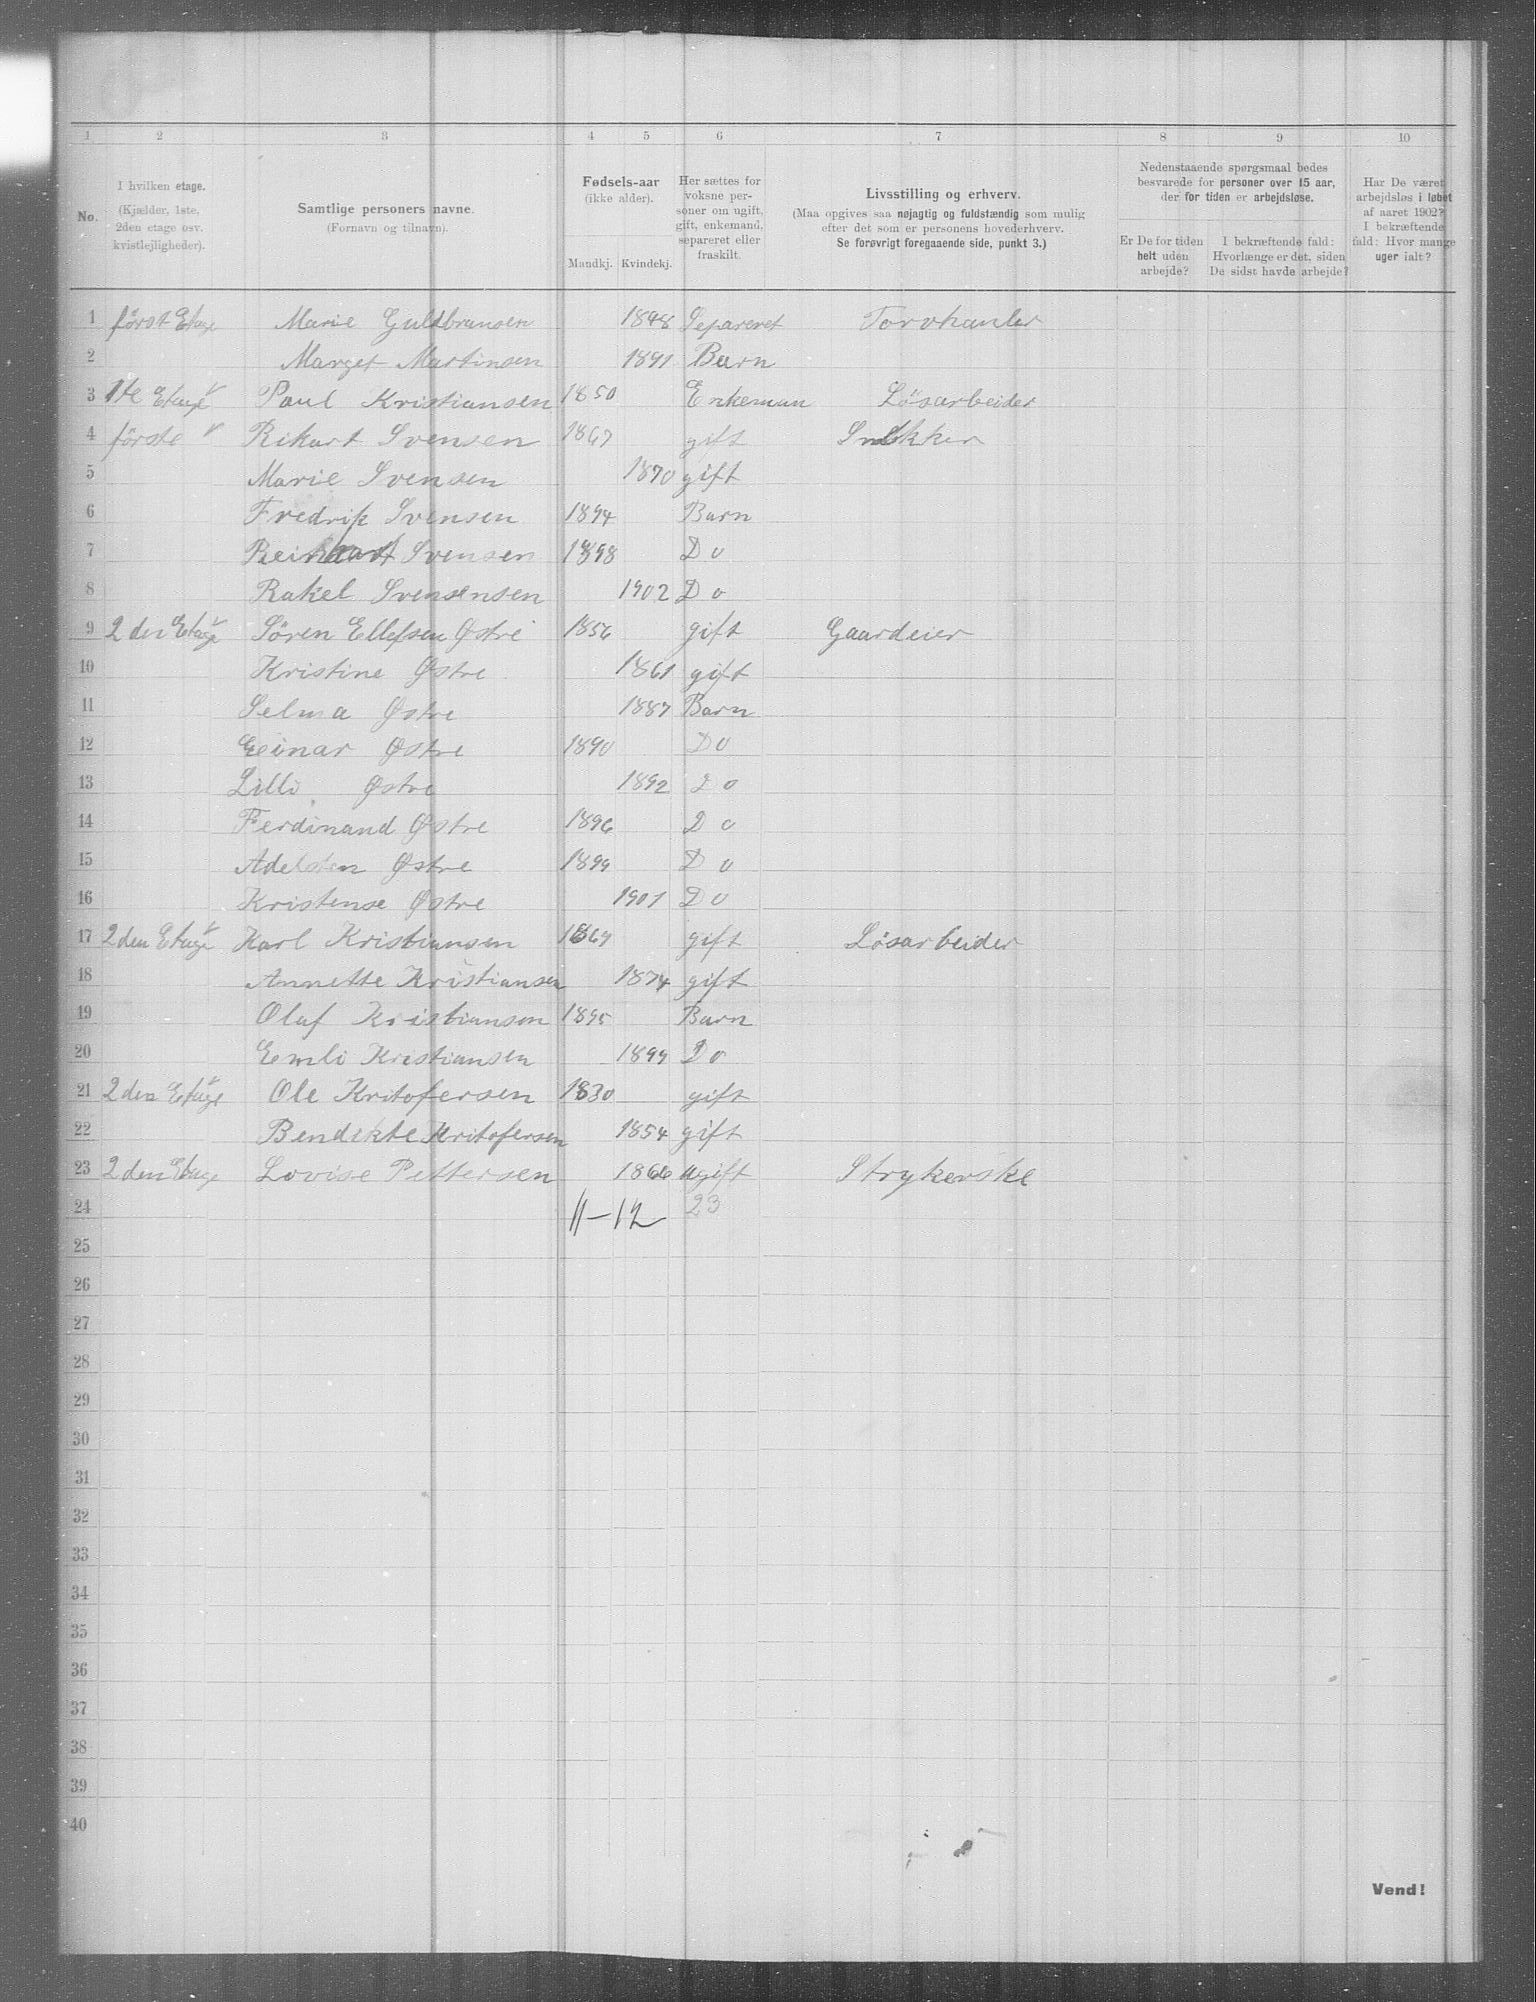 1 2 3 4 5 6 7 8 9 10
No.
I hvilken etage.
(Kjælder, 1ste,
2den etage osv.
kvistlejligheder).
Samtlige personers navne.
(Fornavn og tilnavn).
Fødsels-aar
(ikke alder).
Mandkj. Kvindekj.
Her sættes for
voksne per-
soner om ugift,
gift, enkemand,
separeret eller
fraskilt.
Livsstilling og erhverv.
(Maa opgives saa nøjagtig og fuldstændig som mulig
efter det som er personens hovederhverv.
Se forøvrigt foregaaende side, punkt 3.)
Nedenstaaende spørgsmaal bedes
besvarede for personer over 15 aar,
der for tiden er arbejdsløse.
Er De for tiden
helt uden
arbejde?
I bekræftende fald:
Hvorlænge er det, siden
De sidst havde arbejde?
Har De været
arbejdsløs i løbet
af aaret 1902?
I bekræftende
fald: Hvor mange
uger ialt?
1 först Etage Marie Guldbransen 1848 Separeret Torvhanler
2 Marget Martinsen 1891 Barn
3 1te Etage Paul Kristiansen 1850 Enkeman Lösarbeider
4 förste Rikart Svensen 1867 gift Snekker
5 Marie Svensen 1870 gift
6 Fredrik Svensen 1894 Barn
7 Reinhart Svensen 1898 Do
8 Rakel Svensensen 1902 Do
9 2 den Etage Sören Ellefsen Østre 1856 gift Gaardeier
10 Kristine Østre 1861 gift
11 Selma Østre 1887 Barn
12 Eeinar Østre 1890 Do
13 Lilli Østre 1892 Do
14 Ferdinand Østre 1896 Do
15 Adelsten Østre 1899 Do
16 Kristense Østre 1901 Do
17 2 den Etage Karl Kristiansen 1869 gift Lösarbeider
18 Annette Kristiansen 1874 gift
19 Olaf Kristiansen 1895 Barn
20 Eemli Kristiansen 1899 Do
21 2 den Etage Ole Kritofersen 1830 gift
22 Bendikte Kritofersen 1854 gift
23 2 den Etage Lovise Pettersen 1866 ugift Strykerske
24 11-12 23
25
26
27
28
29
30
31
32
33
34
35
36
37
38
39
40
Vend!